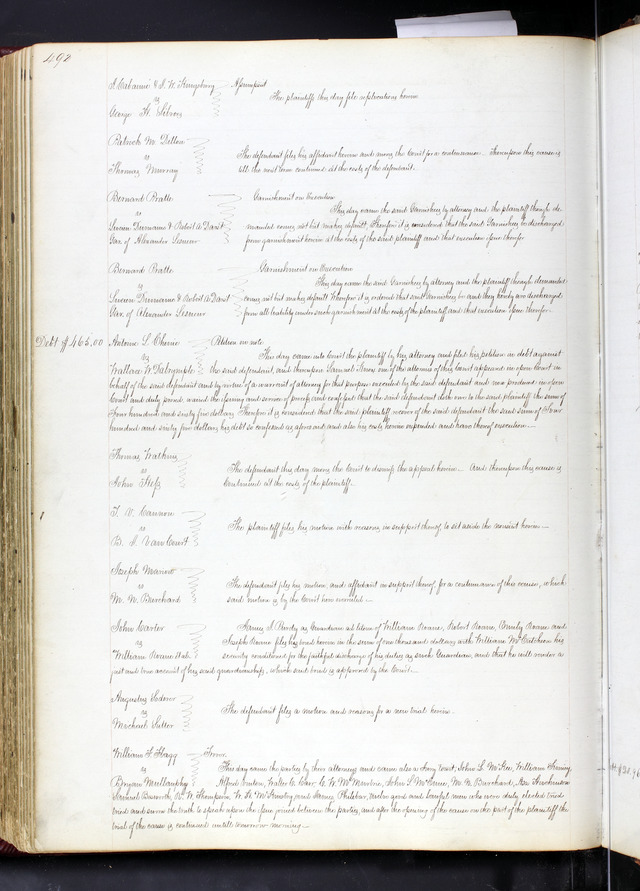 492
& S. W. Humphrey Assumpsit
vs The plaintiffs this day file replications herein
George H.
Patrick M. Dillon
vs The defendant files his affidavit herein and moves the Court for a continuance. Thereupon this cause is
Thomas Murray till the next term continued at the costs of the defendant.
Bernard Pratte Garnishment on Execution
This day came the said Garnishees by attorney and the plaintiff though de-
vs manded comes not but makes default, Therefore it is considered that the said Garnishees be discharged
& Robert A. from garnishment herein at the costs of the said plaintiff and that execution issue therefor
Gar. of Alexander
Bernard Pratte Garnishment on Execution
This day came the said Garnishees by attorney and the plaintiff though demanded
vs comes not but makes default Wherefore it is ordered that said Garnishees be and they hereby are discharged
& Robert A. from all liability under such garnishment at the costs of the plaintiff and that execution issue therefor.
Gar. of Alexander
Debt $465.00 Antoine L. Petition on note
vs This day came into Court the plaintiff by his attorney and files his petition in debt against
Wallace W. Dalrymple the said defendant, and thereupon Samuel one of the attorneys of this Court appears in open Court in
behalf of the said defendant and by virtue of a warrant of attorney for that purpose executed by the said defendant and now produced in open
Court and duly proved, waived the issuing and service of process and confessed that the said defendant doth owe to the said plaintiff the sum of
Four hundred and sixty five dollars. Therefore it is considered that the said plaintiff recover of the said defendant the said sum of Four
hundred and sixty five dollars, his debt so confessed as aforesaid and also his costs herein expended and have thereof execution.
Thomas Watkins
vs The defendant this day moves the Court to dismiss the appeal herein. And thereupon this cause is
John continued at the costs of the plaintiff.
Cannon
vs The plaintiff files his motion with reasons in support thereof, to set aside the nonsuit herein
B. Van Court
Joseph
vs The defendant files his motion, and affidavit in support thereof for a continuance of this cause, which
M. N. Burchard said motion is by the Court here overruled.
John Carter James Purdy as Guardian ad litem of William Roane, Robert Roane, Emily Roane and
vs Joseph Roane files his bond herein in the sum of one thousand dollars with William McCutcheon his
William Roane et al. security conditioned for the faithful discharge of his duties as such Guardian, and that he will render a
just and true account of his said guardianship, which said bond is approved by the Court.
Augustus
vs The defendant files a motion and reasons for a new trial herein
Michael
William F. Flagg Trover
vs This day came the parties by their attorneys and came also a Jury to wit, John L. McKee, William
Bryan Mullanphy Alfred C. W. John L. M. N. Burchard, Asa
Samuel W. Thompson, W. H. and James twelve good and lawful men who were duly elected tried
tried and sworn the truth to speak upon the issue joined between the parties, and after the opening of the cause on the part of the plaintiff the
trial of the cause is continued untill tomorrow morning.